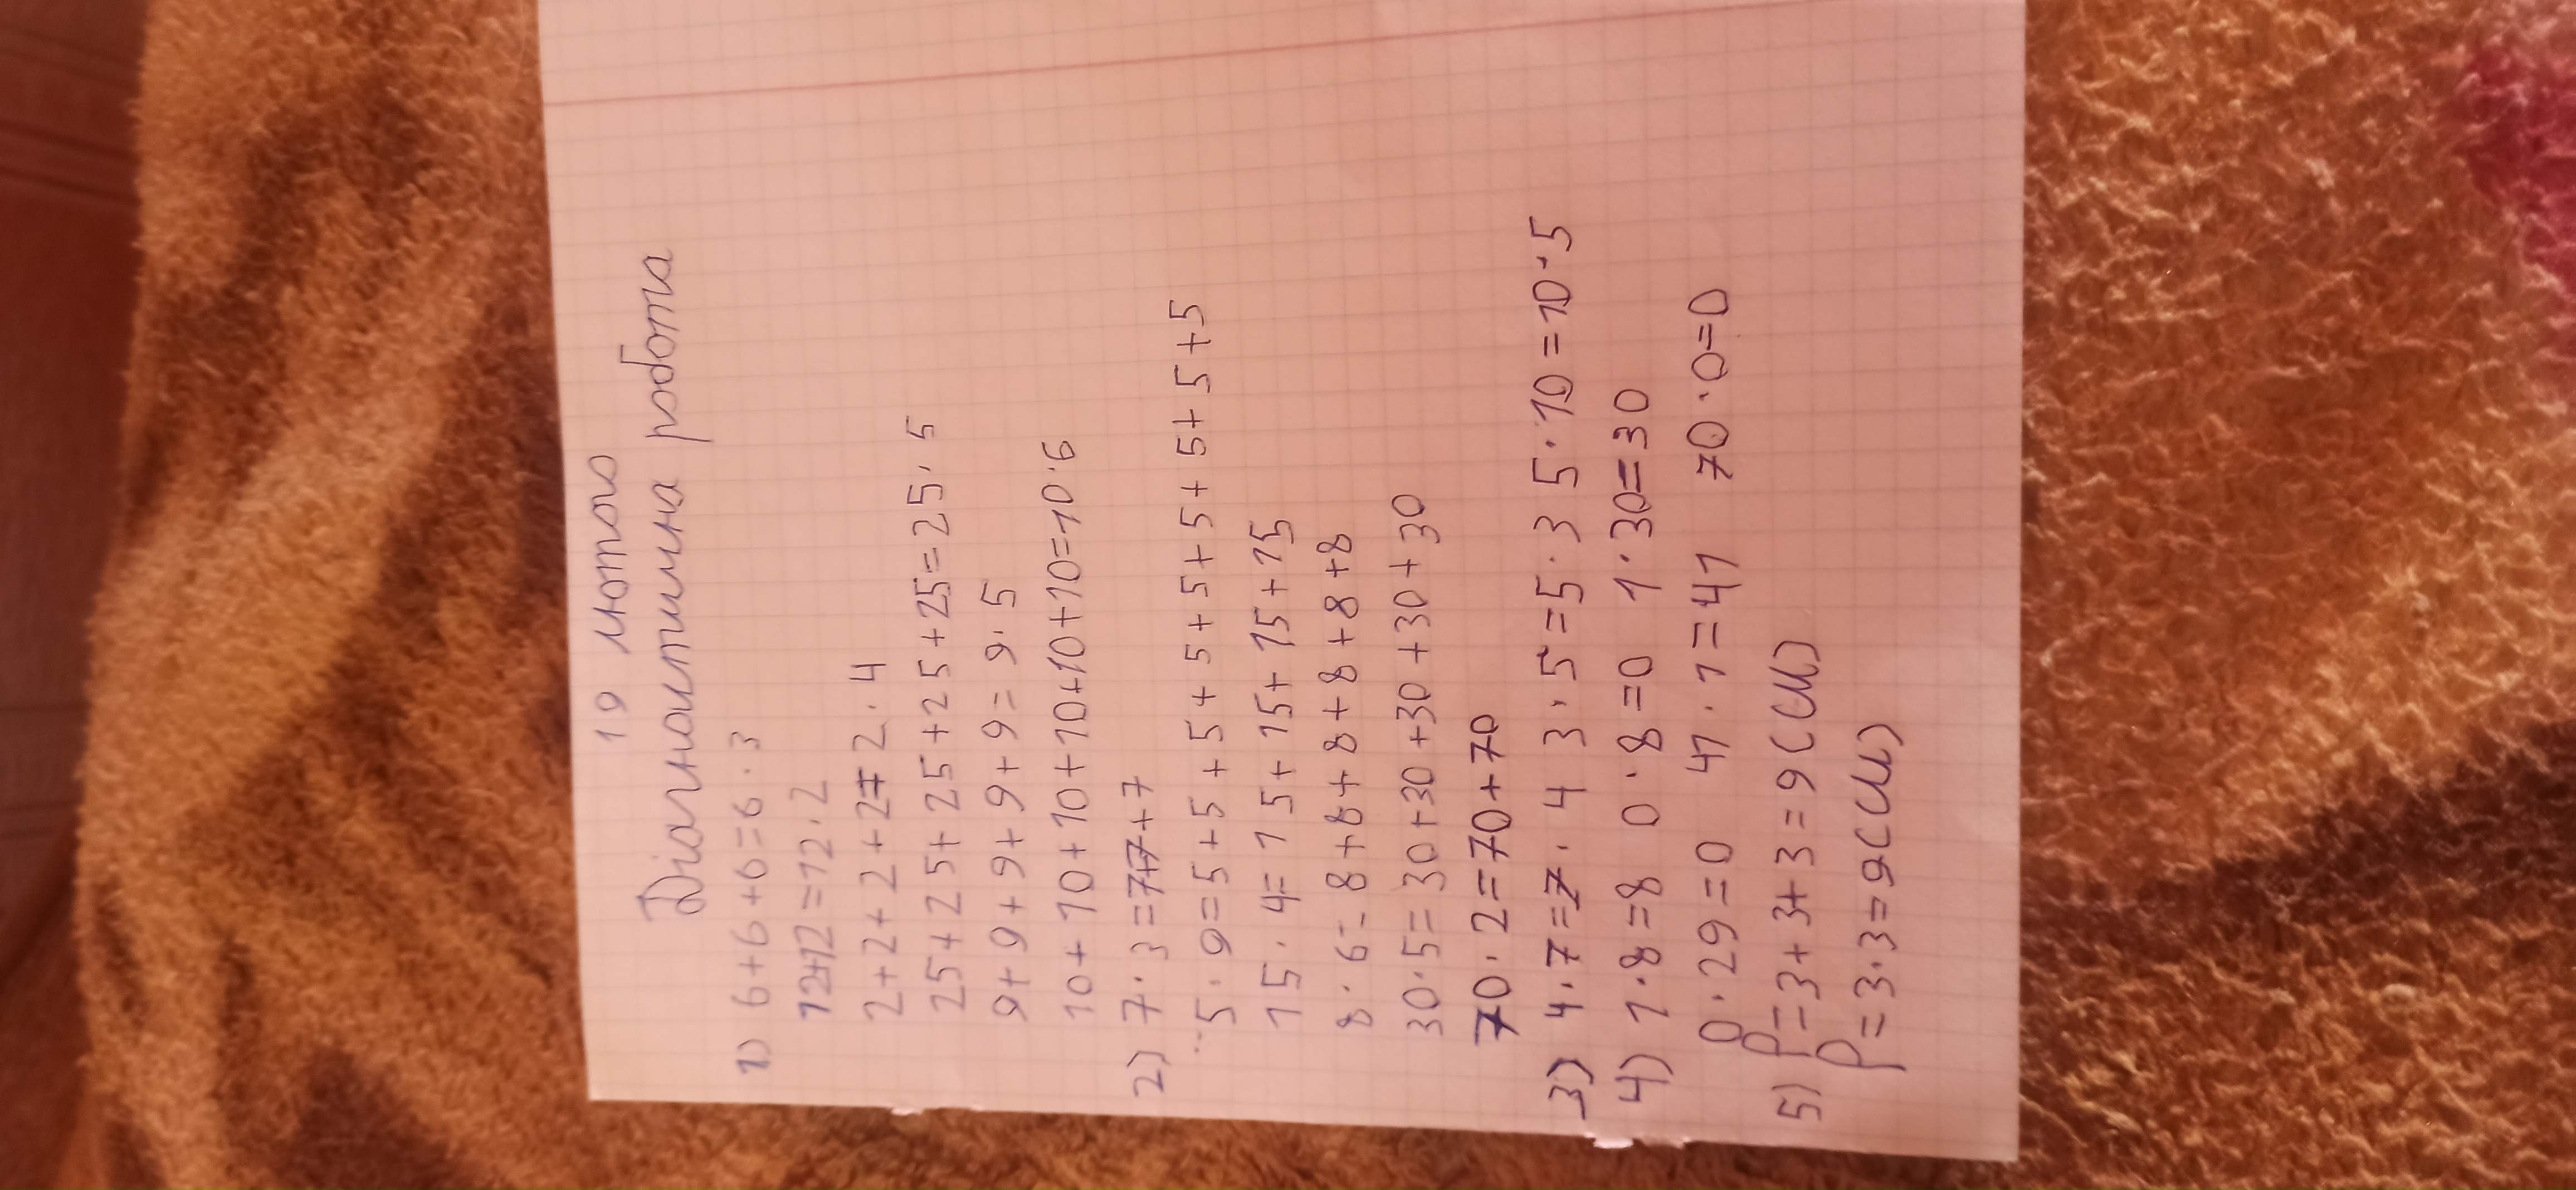 19 лютого
Діагностична робота
1) 6+6+6=6·3
12+12=12·2
2+2+2+2=2·4
25+25+25+25+25=25·5
9+9+9+9+9=9·5
10+10+10+10+10+10=10·6
2) 7·3=7+7+7
5·9=5+5+5+5+5+5+5+5+5
15·4=15+15+15+15
8·6=8+8+8+8+8+8
30·5=30+30+30+30+30
70·2=70+70
3) 4·7=7·4 3·5=5·3 5·10=10·5
4) 1·8=8 0·8=0 1·30=30
0·29=0 41·1=41 70·0=0
5) P=3+3+3=9(см)
P=3·3=9(см)